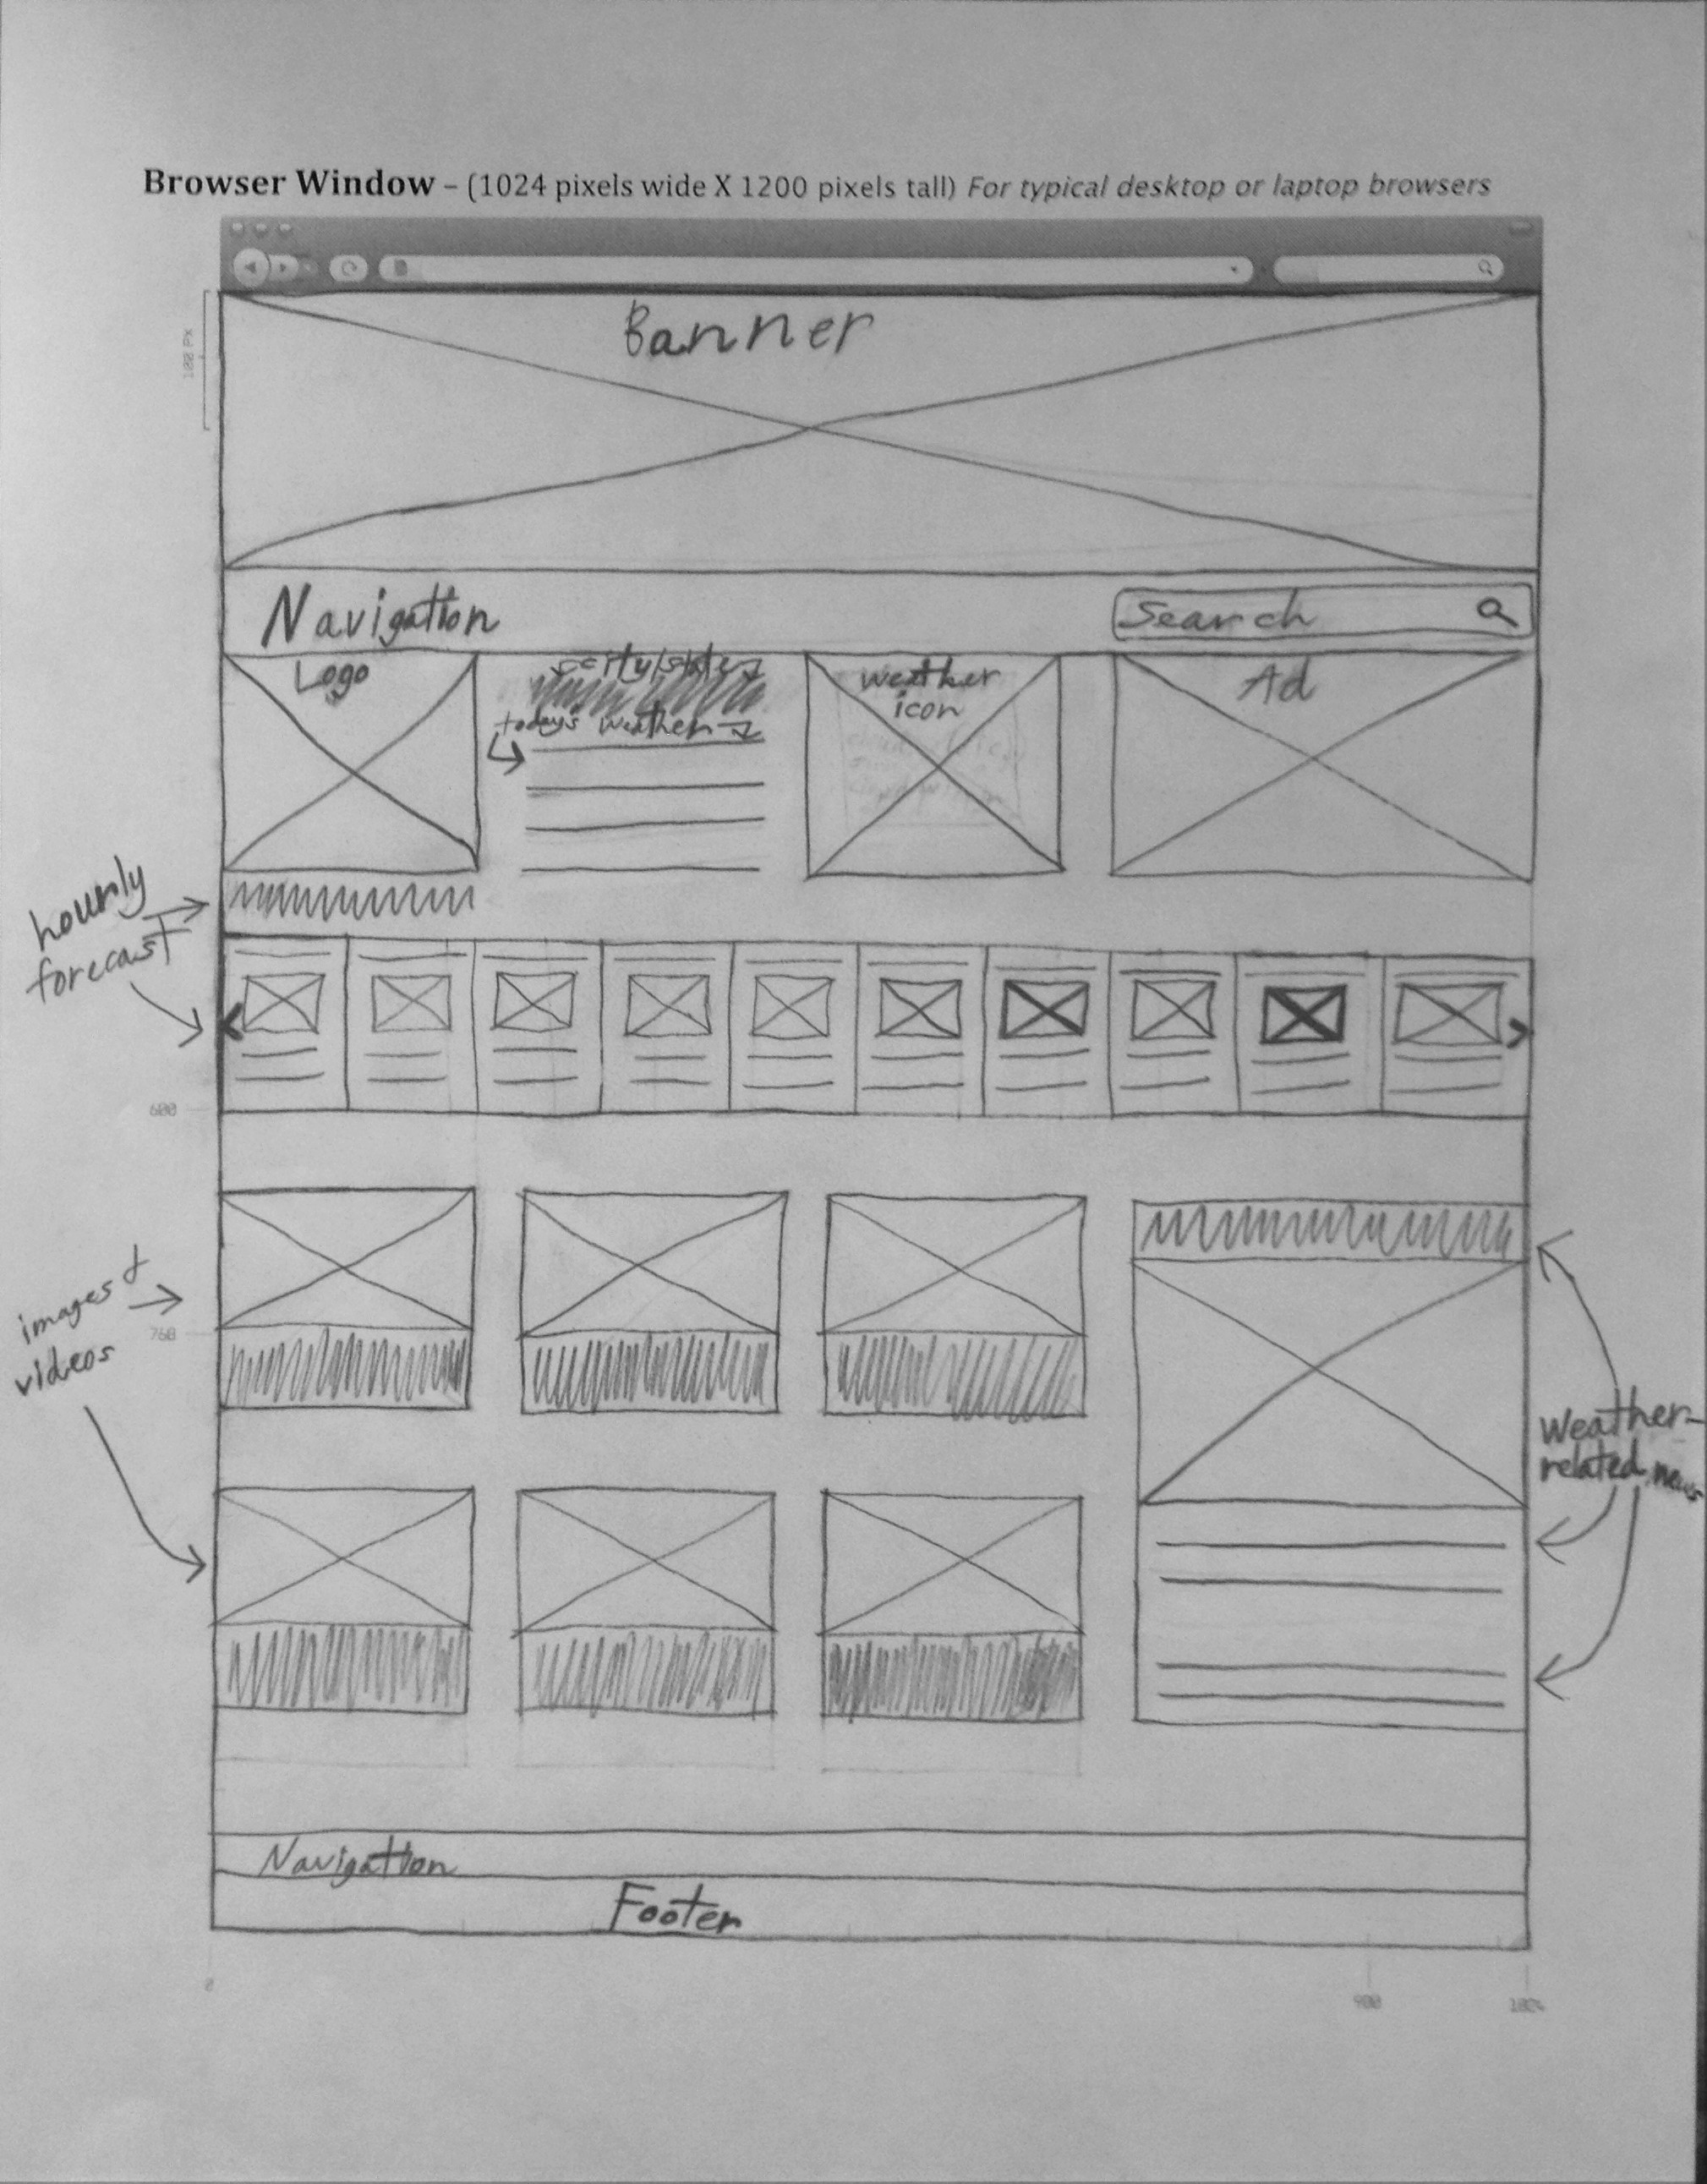 Browser Window – (1024 pixels wide X 1200 pixels tall) For typical desktop or laptop browsers
100 Px
Banner
Navigation
Search
Logo
city/state
today's weather
weather
icon
Ad
hourly
forecast
600
images &
videos
768
Weather-
related news
Navigation
Footer
0
900
1024